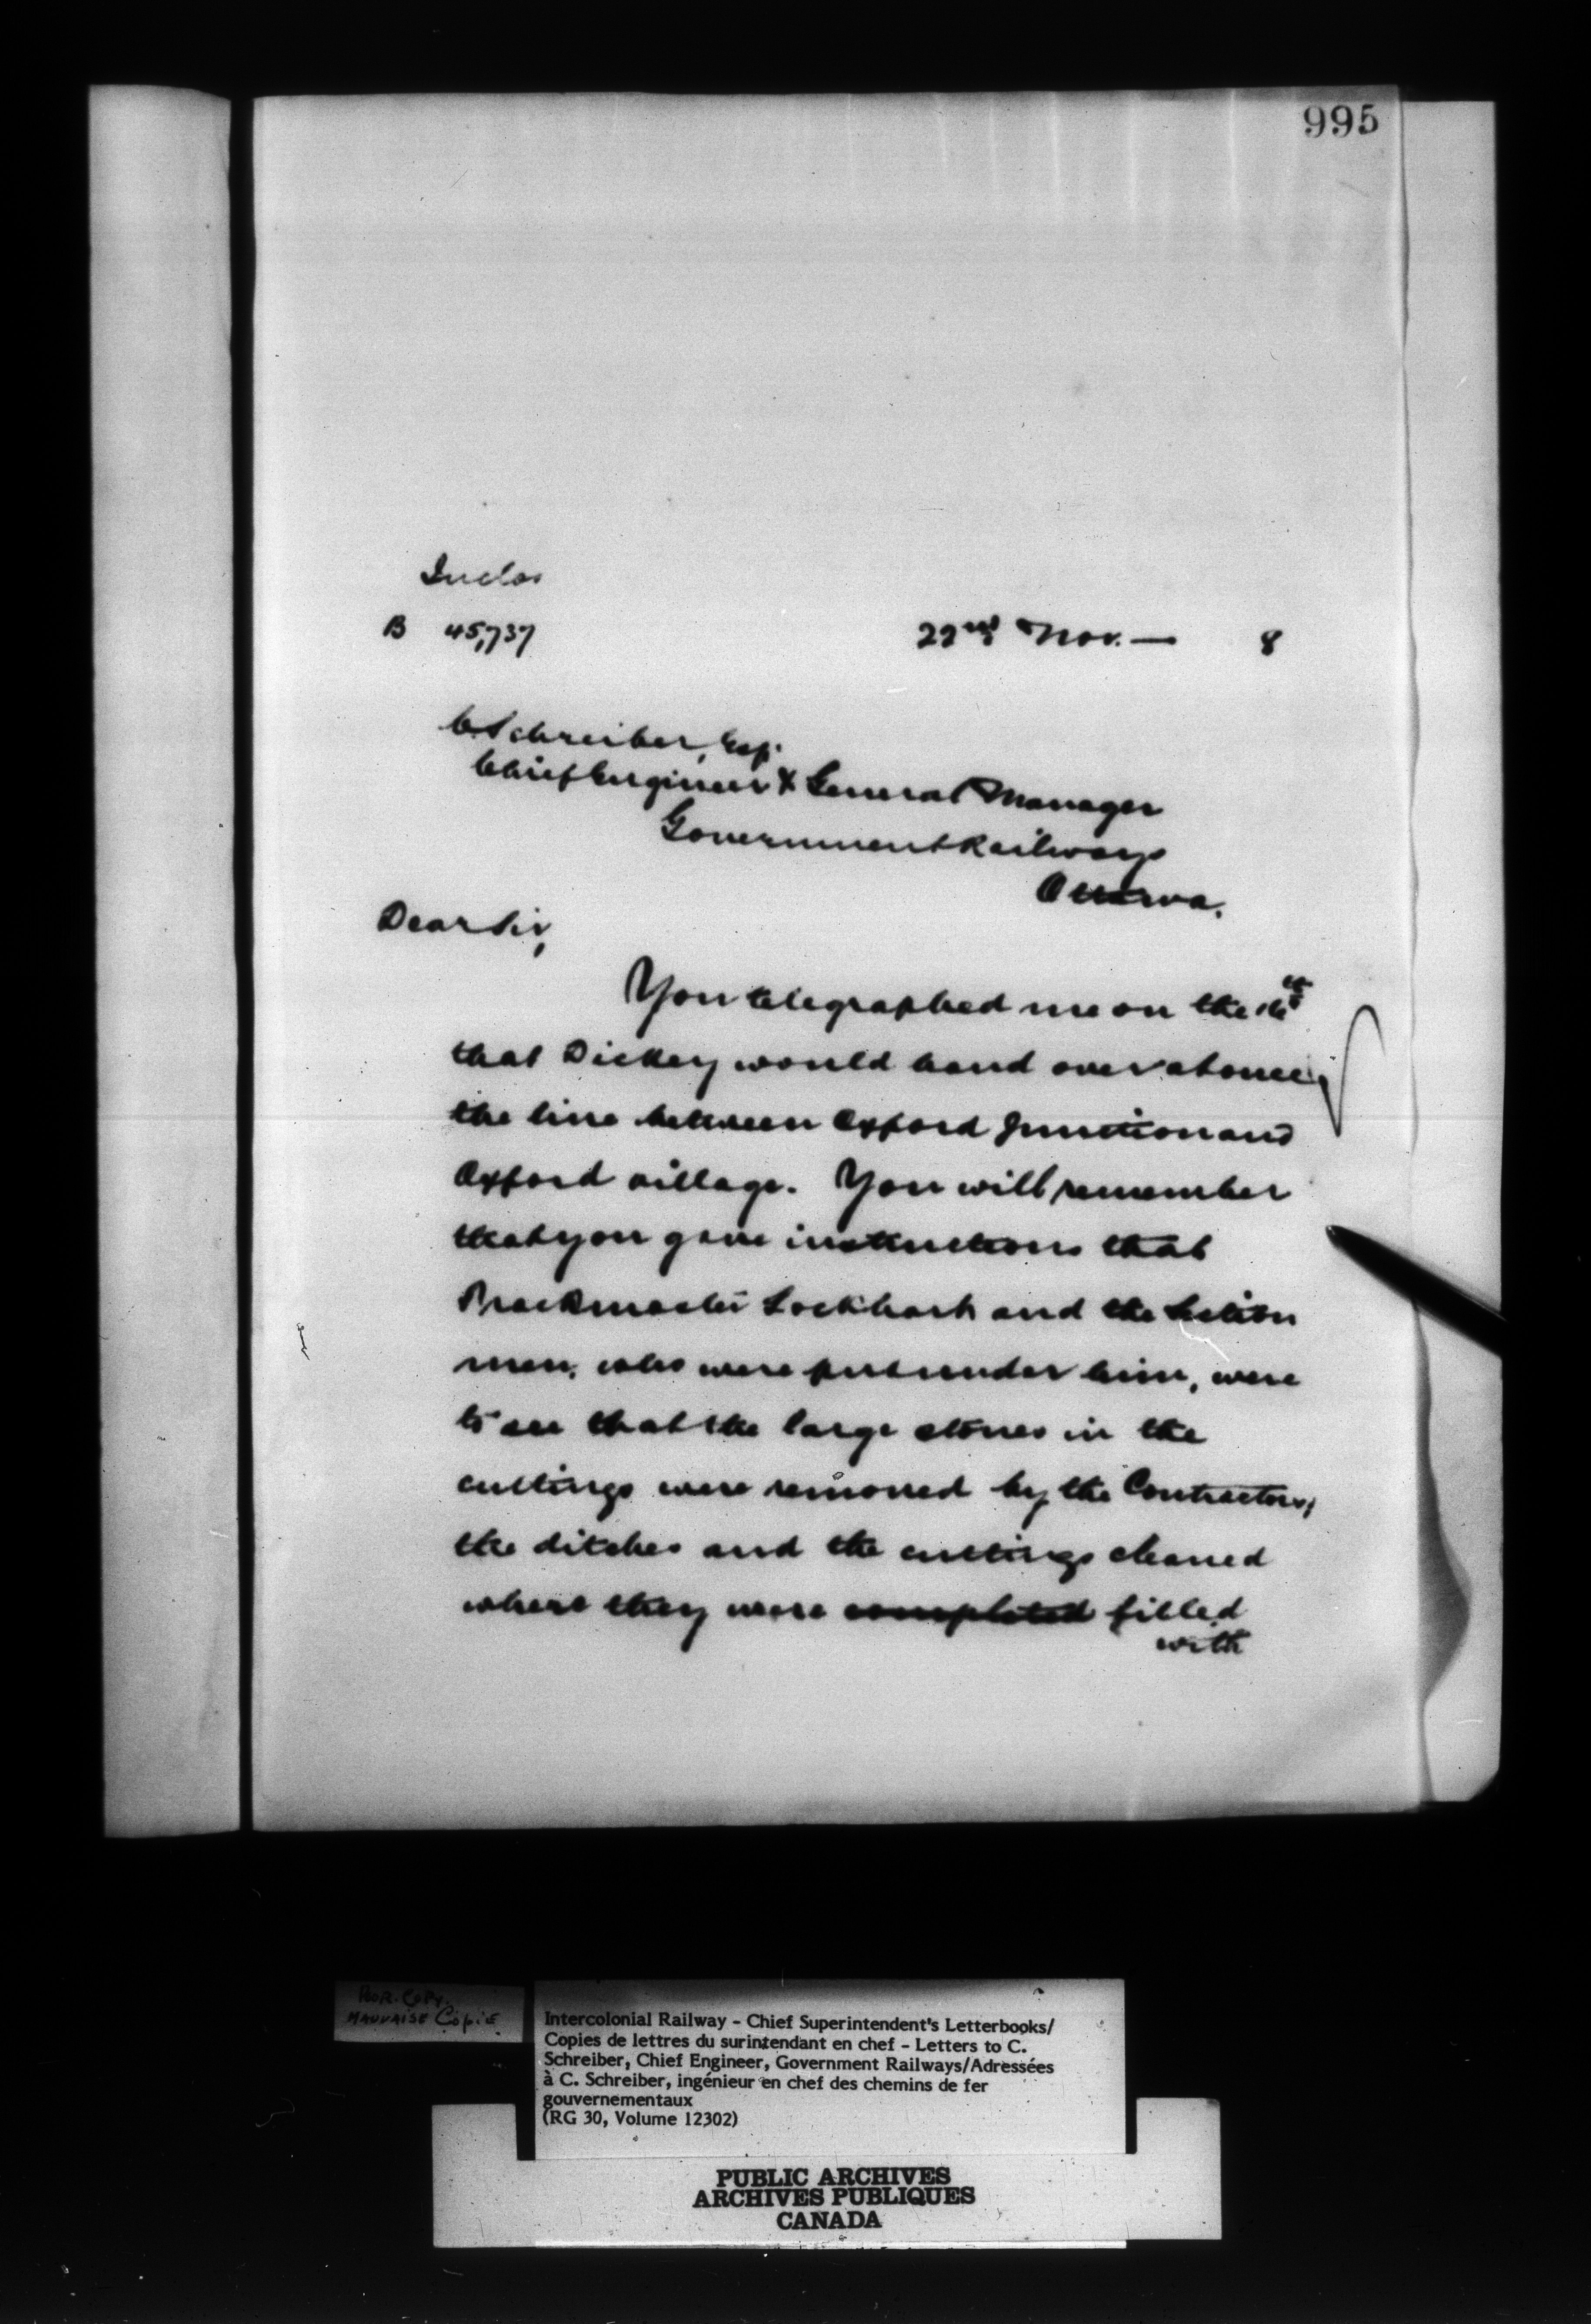 995
Inclos
B 45,737
22nd Nov. — 8
C Schreiber, Esq.
Chief Engineer & General Manager
Government Railways
Ottawa.
Dear Sir,
You telegraphed me on the 16th
that Dickey would hand over at once,
the line between Oxford Junction and
Oxford village. You will remember
that you gave instructions that
Trackmaster Lockhart and the Section
men, who were put under him, were
to see that the large stones in the
cuttings were removed by the Contractors,
the ditches and the cuttings cleaned
where they were completed filled
with
POOR COPY.
MAUVAISE Copie
Intercolonial Railway - Chief Superintendent's Letterbooks/
Copies de lettres du surintendant en chef - Letters to C.
Schreiber, Chief Engineer, Government Railways/Adressées
à C. Schreiber, ingénieur en chef des chemins de fer
gouvernementaux
(RG 30, Volume 12302)
PUBLIC ARCHIVES
ARCHIVES PUBLIQUES
CANADA